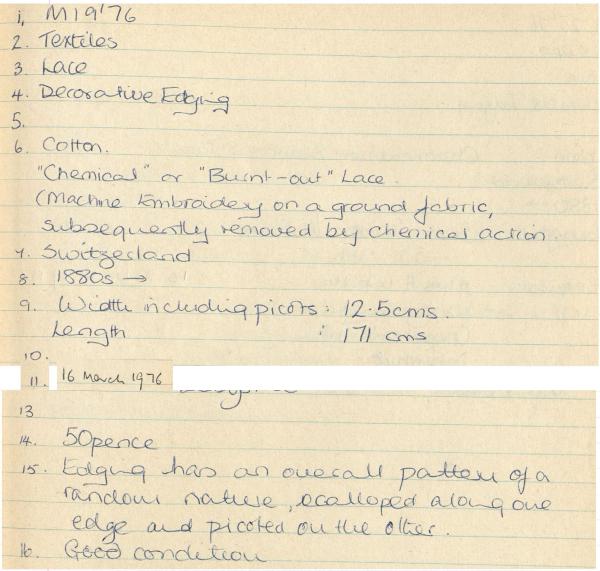 1, M19'76
2. Textiles
3. Lace
4. Decorative Edging
5.
6. Cotton.
"Chemical" or "Burnt-out" Lace.
(Machine Embroidery on a ground fabric,
subsequently removed by chemical action.
7. Switzerland
8. 1880s →
9. Width including picots: 12.5cms.
Length : 171 cms
10.
11. 16 March 1976
13
14. 50pence
15. Edging has an overall pattern of a
random nature, scalloped along one
edge and picoted on the other.
16. Good condition